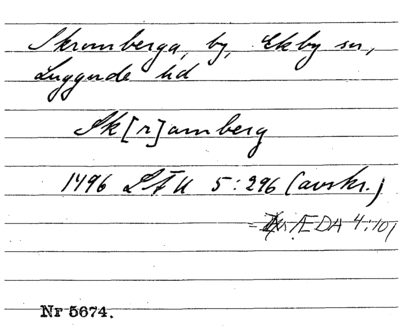 Skromberga, by, Ekby sn,
Luggude hd
Sk[r]amberg
1496 LÅU 5:296 (avskr.)
= ÆDA 4:101
Nr 5674.